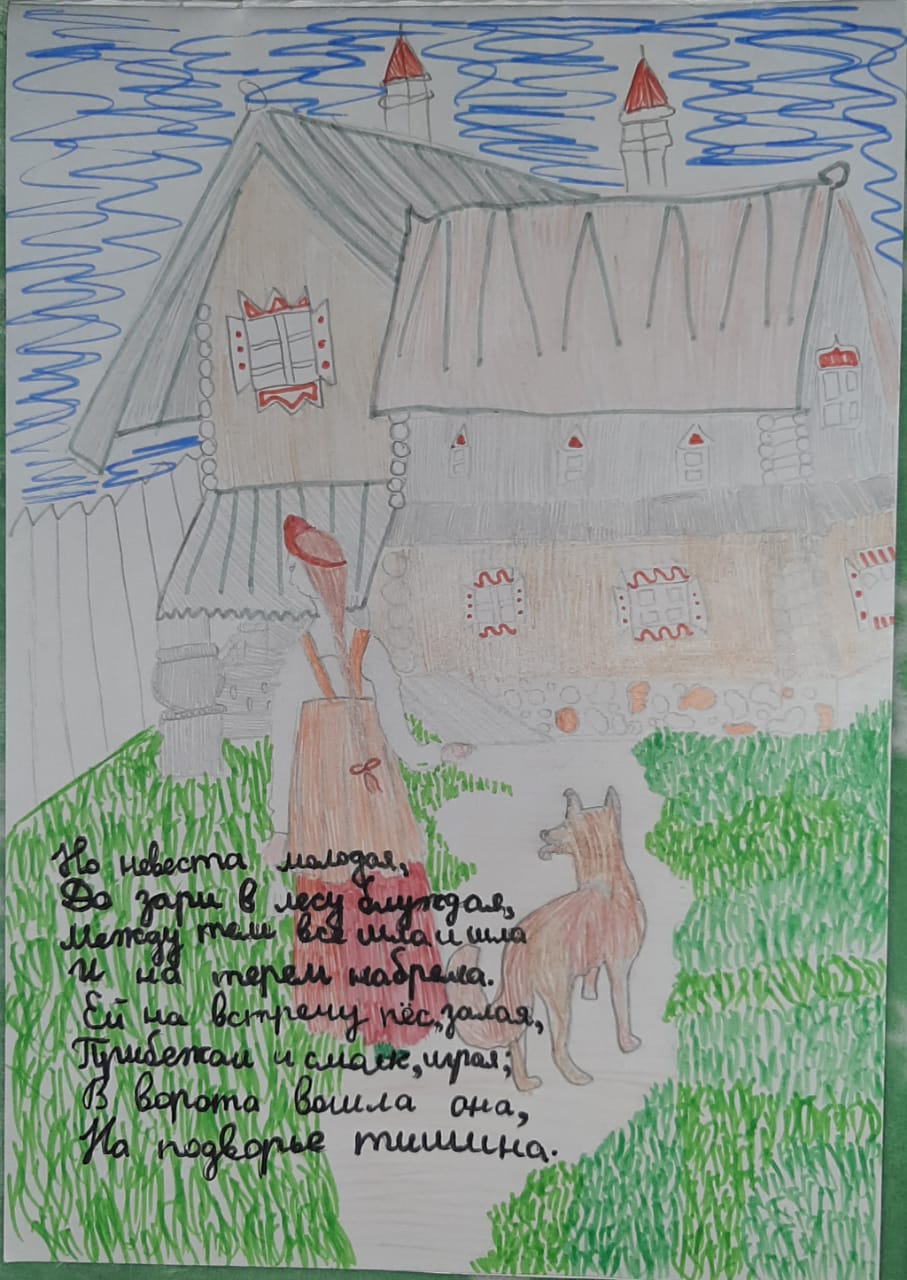 Но невеста молодая,
До зари в лесу блуждая,
Между тем всё шла и шла
И на терем набрела.
Ей на встречу пёс, залая,
Прибежал и смолк, играя;
В ворота вошла она,
На подворье тишина.